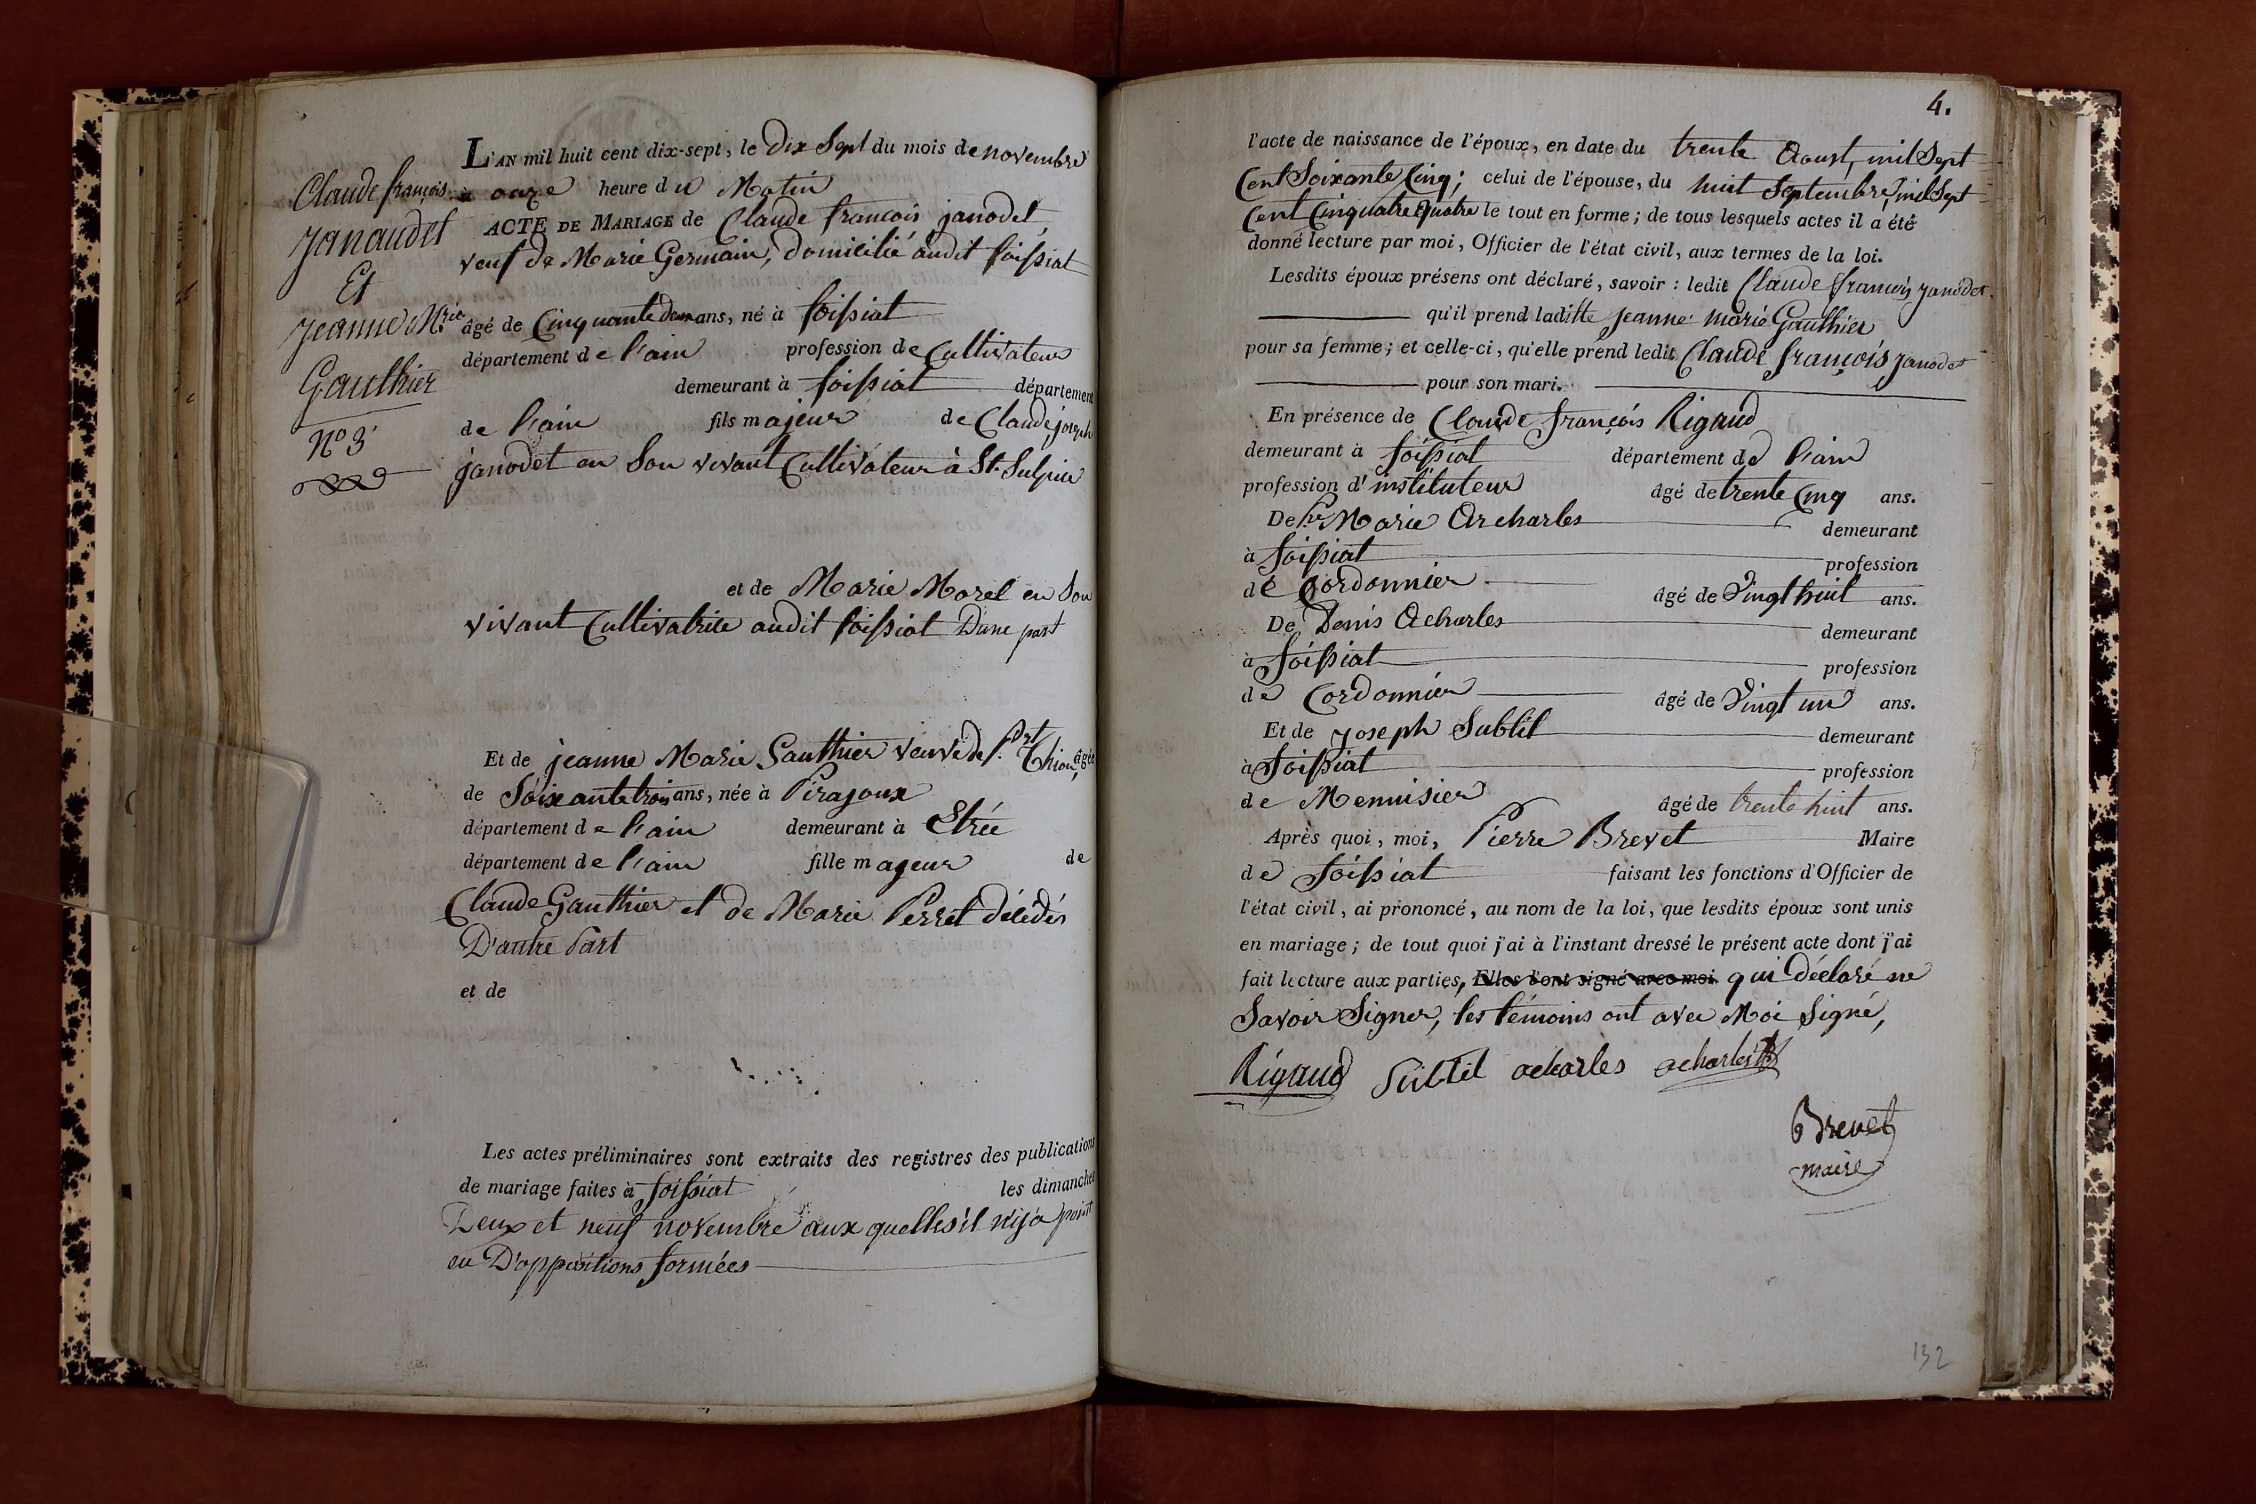 Claude françois
janaudet
Et
jeanne M.rie
Gauthier
N.º 3
L'AN mil huit cent dix-sept, le Dix Sept du mois de novembre
à onze heure du Matin
ACTE DE MARIAGE de Claude françois janodet,
veuf de Marie Germain, Domicilié audit foissiat
âgé de Cinquante deux ans, né à foissiat
département de l'ain profession de Cultivateur
demeurant à foissiat département
de l'ain fils majeur de Claude joseph
janodet en Son vivant Cultivateur à St. Sulpice
et de Marie Morel en Son
vivant Cultivatrice audit foissiat D'une part
Et de jeanne Marie Gauthier veuve de Thion, âgée
de Soixante trois ans, née à Pirajoux
département de l'ain demeurant à Etrée
département de l'ain fille majeur de
Claude Gauthier et de Marie Perret décédés
D'autre Part
et de
Les actes préliminaires sont extraits des registres des publications
de mariage faites à foissiat les dimanches
Deux et neuf novembre aux quelles il n'ya point
eu D'oppositions formées
4.
l'acte de naissance de l'époux, en date du trente Aoust, mil Sept
Cent Soixante Cinq; celui de l'épouse, du huit Septembre, mil Sept
Cent Cinquatre Quatre le tout en forme; de tous lesquels actes il a été
donné lecture par moi, Officier de l'état civil, aux termes de la loi.
Lesdits époux présens ont déclaré, savoir : ledit Claude françois janodet
qu'il prend laditte jeanne marie Gauthier
pour sa femme; et celle-ci, qu'elle prend ledit Claude françois janodet
pour son mari.
En présence de Claude françois Rigaud
demeurant à foissiat département de l'ain
profession d'instituteur âgé de trente Cinq ans.
De Marie Archarles demeurant
à foissiat profession
de Cordonnier âgé de Vingt huit ans.
De Denis Acharles demeurant
à foissiat profession
de Cordonnier âgé de Vingt un ans.
Et de Joseph Subtil demeurant
à foissiat profession
de Menuisier âgé de trente huit ans.
Après quoi, moi, Pierre Brevet Maire
de foissiat faisant les fonctions d'Officier de
l'état civil, ai prononcé, au nom de la loi, que lesdits époux sont unis
en mariage; de tout quoi j'ai à l'instant dressé le présent acte dont j'ai
fait lecture aux parties, Elles l'ont signé avec moi. qui Déclaré ne
Savoir Signer, les témoins ont avec Moi Signé,
Rigaud Subtil acharles acharles
Brevet
maire
132